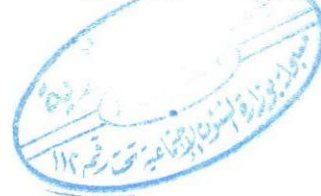 مسجلة بوزارة الشئون الإجتماعية تحت رقم ١١٢